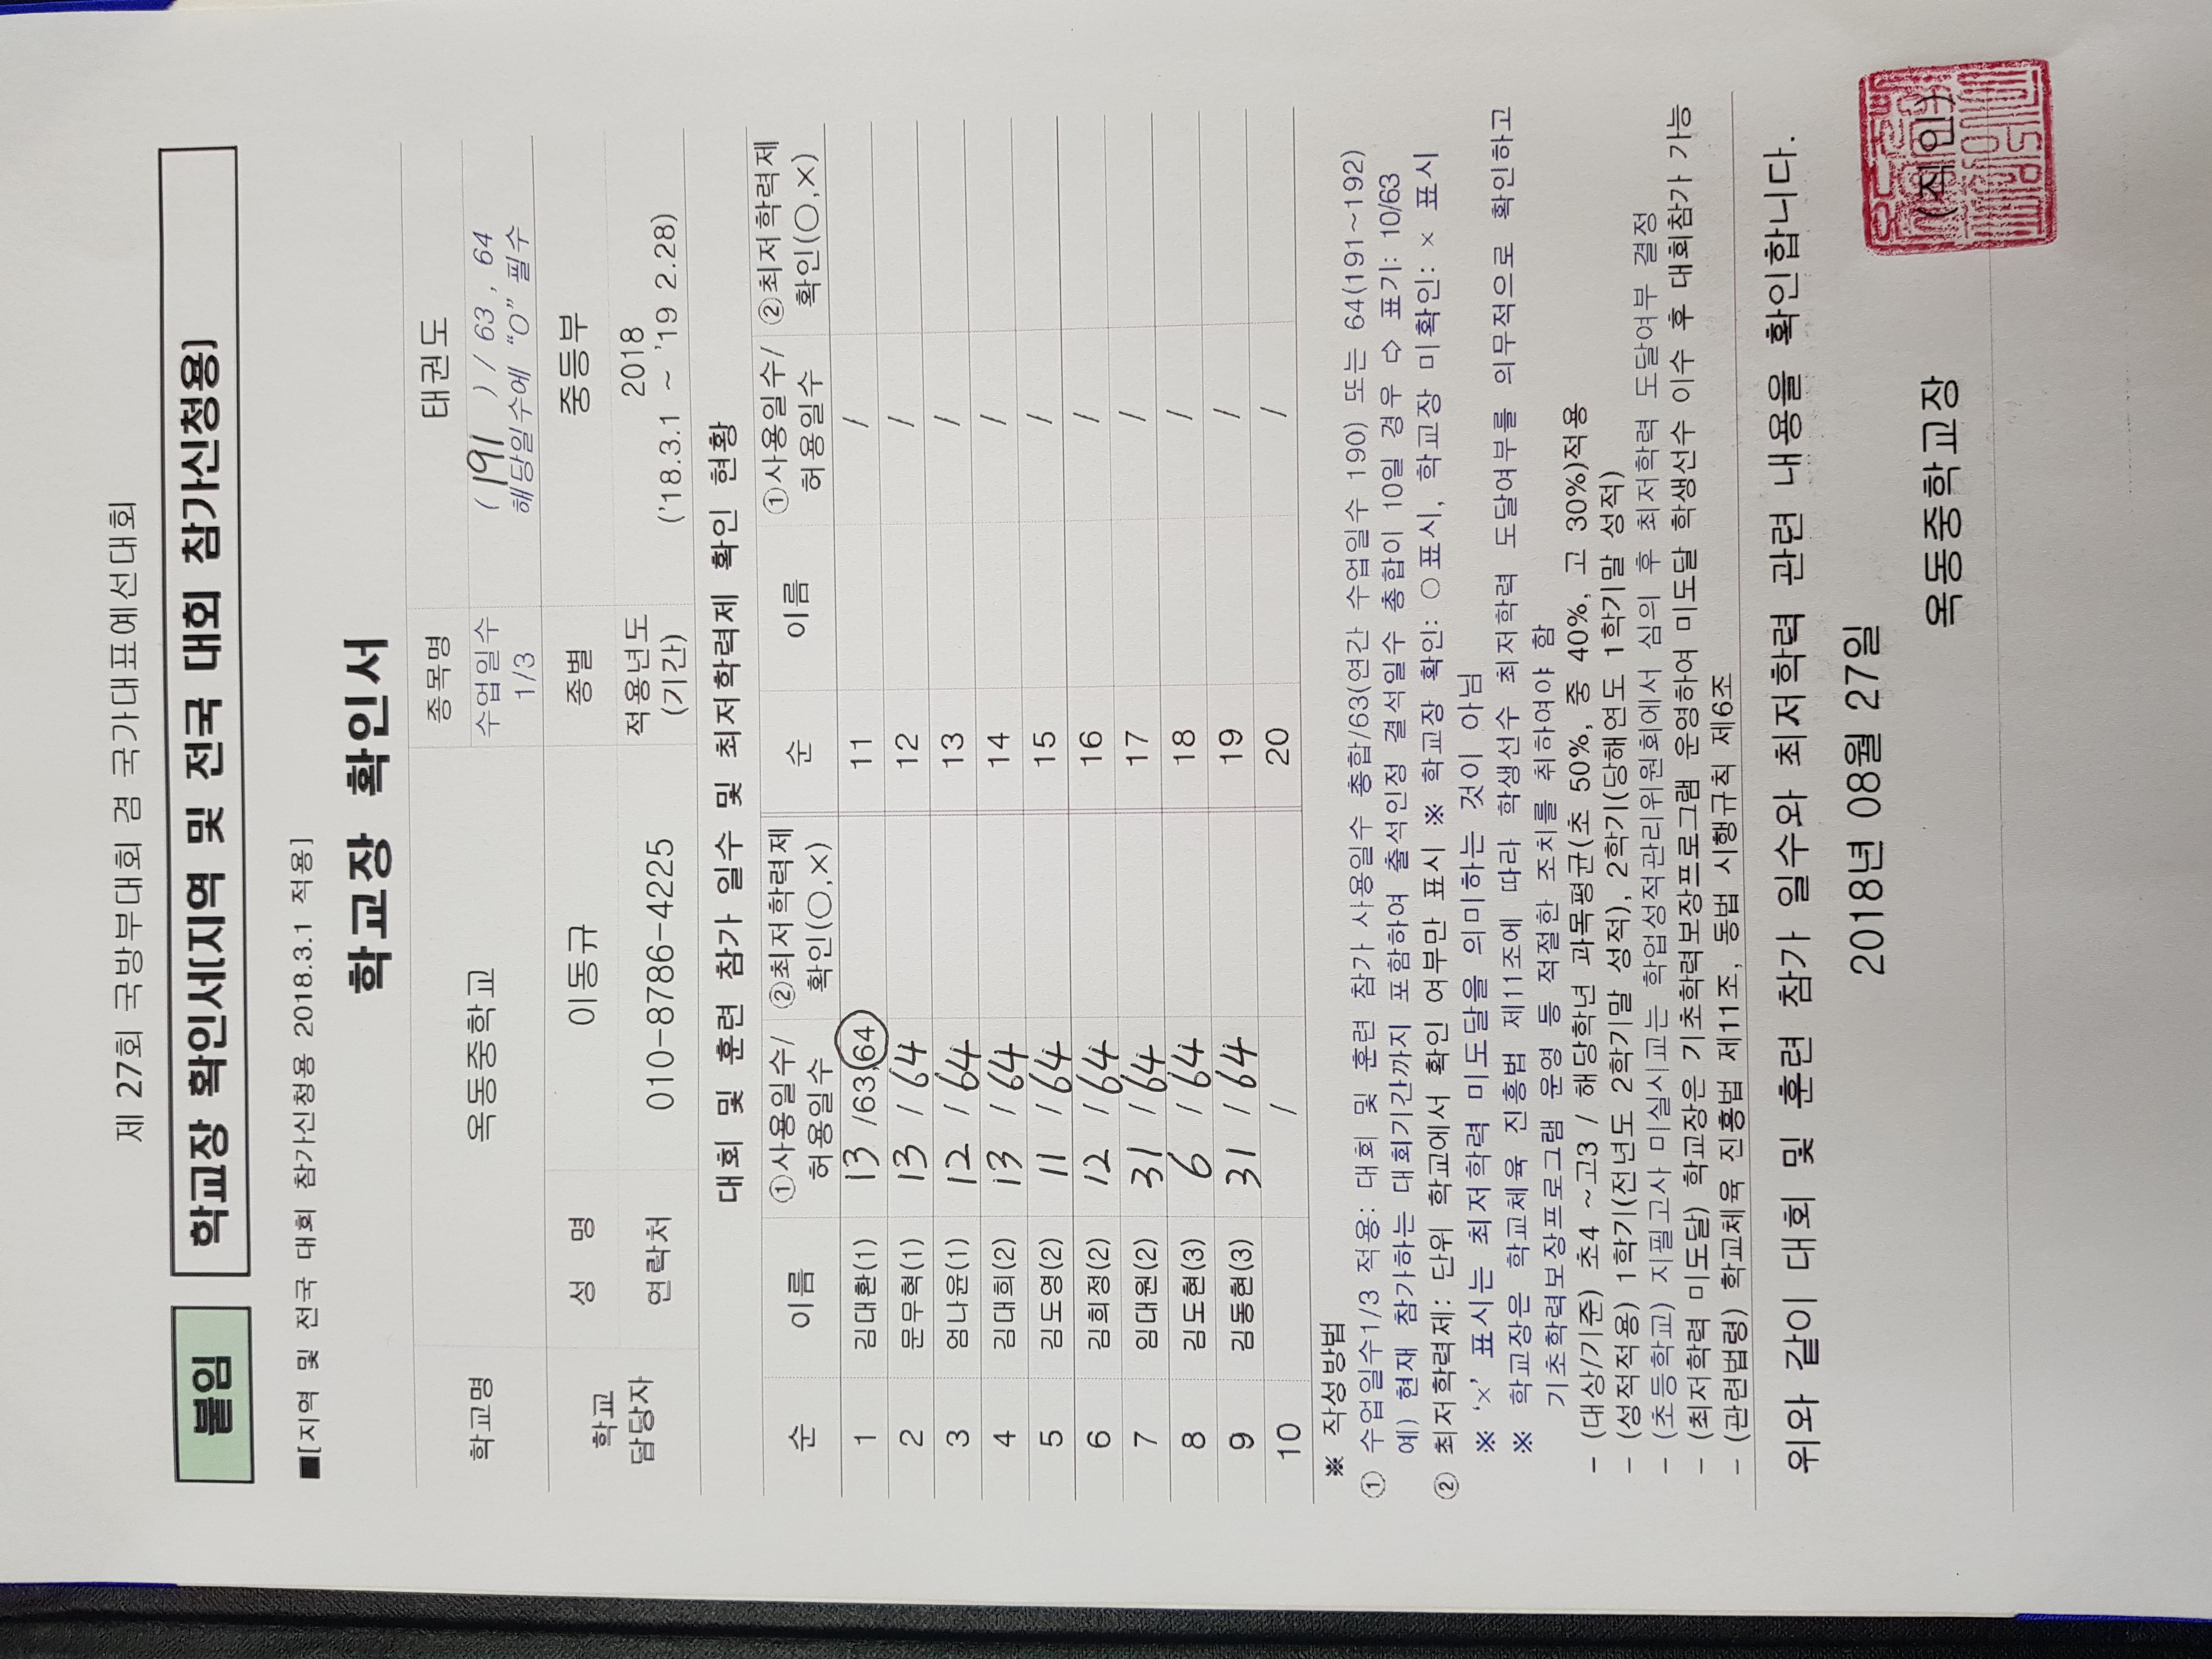 제 27회 국방부대회 겸 국가대표예선대회
붙임
학교장 확인서[지역 및 전국 대회 참가신청용]
■[지역 및 전국 대회 참가신청용 2018.3.1 적용]
학교장 확인서
학교명 옥동중학교 종목명 태권도
수업일수 1/3 ( 191 ) / 63 , 64
해당일수에 “O” 필수
학교 담당자 성 명 이동규 종별 중등부
연락처 010-8786-4225 적용년도 (기간) 2018
('18.3.1 ~ '19 2.28)
대회 및 훈련 참가 일수 및 최저학력제 확인 현황
순 이름 ①사용일수/허용일수 ②최저학력제 확인(○,×) 순 이름 ①사용일수/허용일수 ②최저학력제 확인(○,×)
1 김대환(1) 13 /63,64 11 /
2 문무혁(1) 13 / 64 12 /
3 엄나윤(1) 12 / 64 13 /
4 김대희(2) 13 / 64 14 /
5 김도영(2) 11 / 64 15 /
6 김희정(2) 12 / 64 16 /
7 임대원(2) 31 / 64 17 /
8 김도현(3) 6 / 64 18 /
9 김동현(3) 31 / 64 19 /
10 / 20 /
※ 작성방법
① 수업일수1/3 적용: 대회 및 훈련 참가 사용일수 총합/63(연간 수업일수 190) 또는 64(191~192)
예) 현재 참가하는 대회기간까지 포함하여 출석인정 결석일수 총합이 10일 경우 ⇨ 표기: 10/63
② 최저학력제: 단위 학교에서 확인 여부만 표시 ※ 학교장 확인: ○ 표시, 학교장 미확인: × 표시
※ ‘×’ 표시는 최저학력 미도달을 의미하는 것이 아님
※ 학교장은 학교체육 진흥법 제11조에 따라 학생선수 최저학력 도달여부를 의무적으로 확인하고
기초학력보장프로그램 운영 등 적절한 조치를 취하여야 함
- (대상/기준) 초4 ~고3 / 해당학년 과목평균(초 50%, 중 40%, 고 30%)적용
- (성적적용) 1학기(전년도 2학기말 성적), 2학기(당해연도 1학기말 성적)
- (초등학교) 지필고사 미실시교는 학업성적관리위원회에서 심의 후 최저학력 도달여부 결정
- (최저학력 미도달) 학교장은 기초학력보장프로그램 운영하여 미도달 학생선수 이수 후 대회참가 가능
- (관련법령) 학교체육 진흥법 제11조, 동법 시행규칙 제6조
위와 같이 대회 및 훈련 참가 일수와 최저학력 관련 내용을 확인합니다.
2018년 08월 27일
옥동중학교장 (직인)